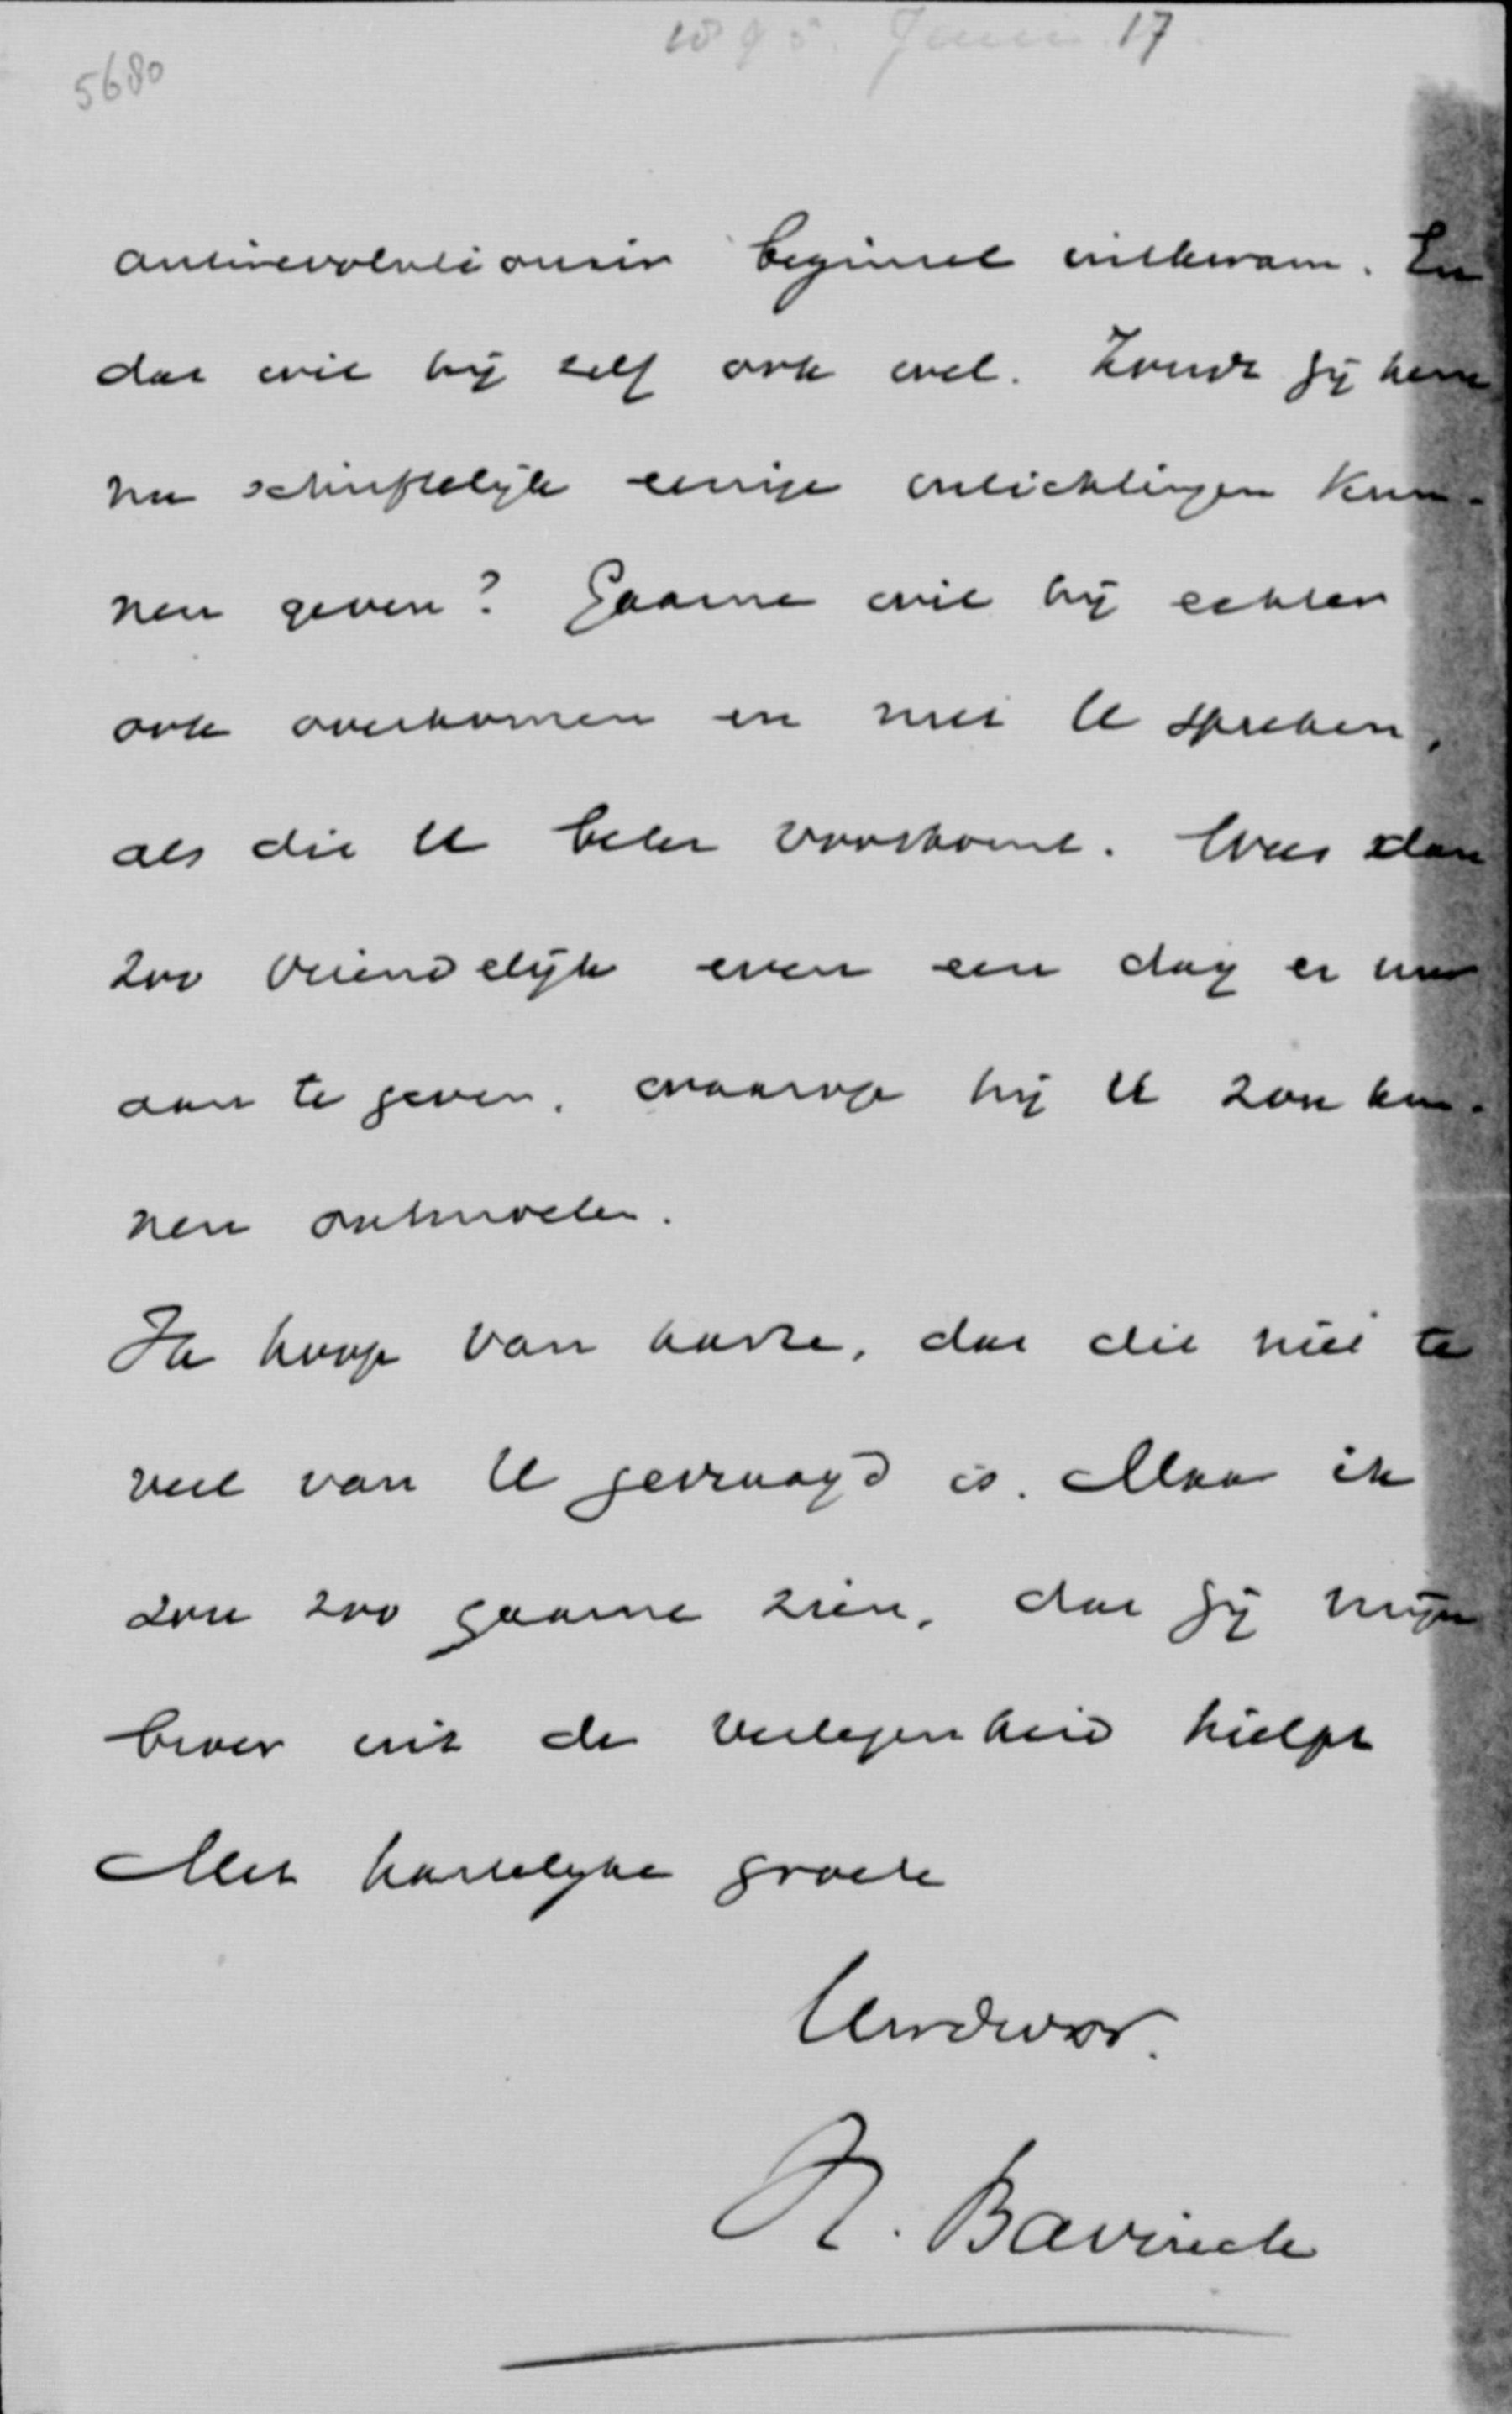 1895. Juni 17
5680
antirevolutionair beginsel uitkwam. En
dat wil hij zelf ook wel. Zoudt Gij hem
nu schriftelijk eenige inlichtingen kun-
nen geven? Gaarne wil hij echter
ook overkomen en met U spreken,
als dit U beter voorkomt. Wees dan
zoo vriendelijk even een dag en uur
aan te geven, waarop hij U zou kun-
nen ontmoeten.
Ik hoop van harte, dat dit niet te
veel van U gevraagd is. Maar ik
zou zoo gaarne zien, dat Gij mijn
broer uit de verlegenheid hielpt
Met hartelijke groete
Uw dw br.
H. Bavinck